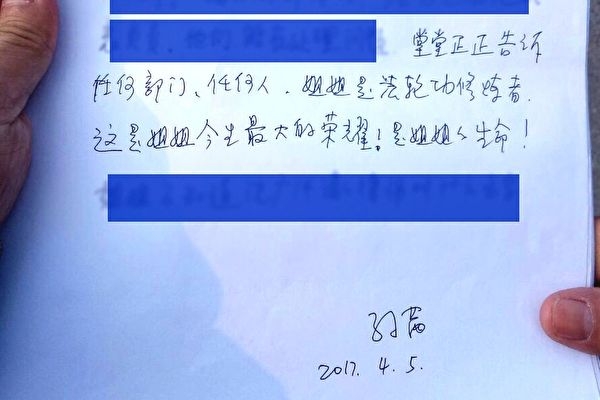 堂堂正正告诉
任何部门、任何人，姐姐是法轮功修炼者，
这是姐姐今生最大的荣耀！是姐姐的生命！
孙茜
2017. 4. 5.